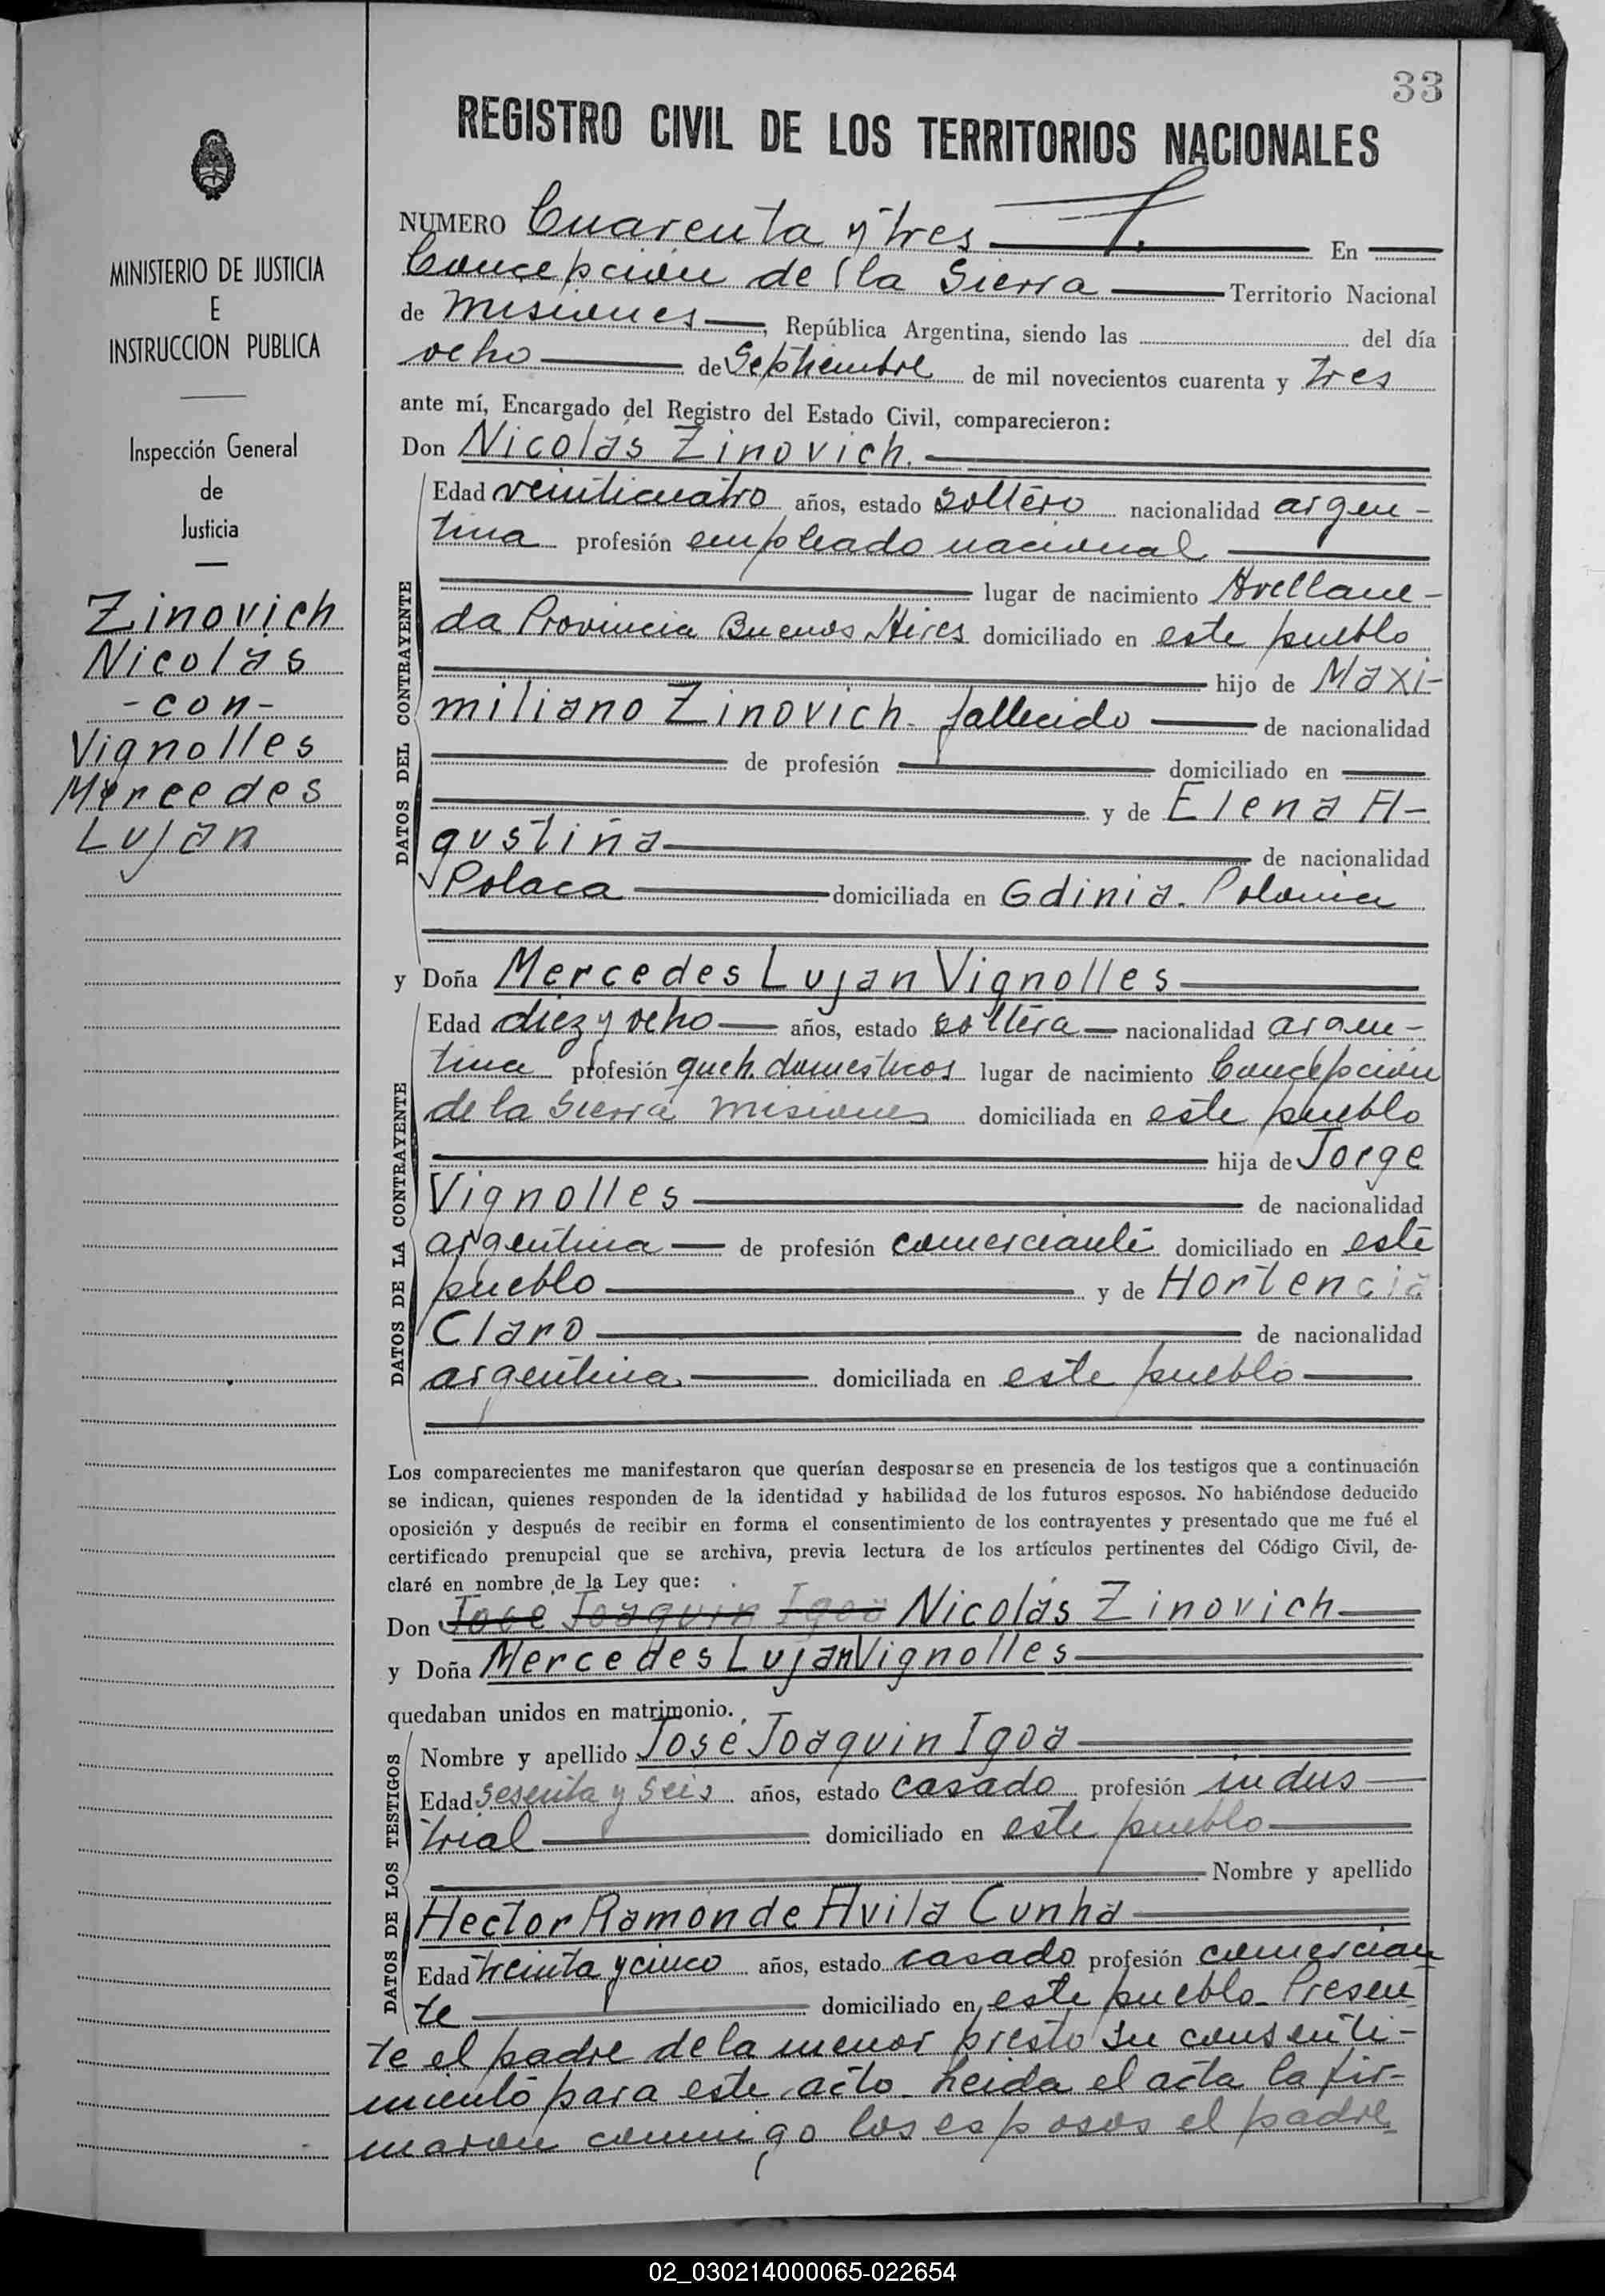 33
REGISTRO CIVIL DE LOS TERRITORIOS NACIONALES
MINISTERIO DE JUSTICIA
E
INSTRUCCION PUBLICA
Inspección General
de
Justicia
Zinovich
Nicolás
-con-
Vignolles
Mercedes
Luján
NUMERO Cuarenta y tres En
Concepcion de la Sierra Territorio Nacional
de Misiones, República Argentina, siendo las del día
ocho de Septiembre de mil novecientos cuarenta y tres
ante mí, Encargado del Registro del Estado Civil, comparecieron:
Don Nicolás Zinovich.
DATOS DEL CONTRAYENTE
Edad veinticuatro años, estado soltero nacionalidad argen-
tina profesión empleado nacional
lugar de nacimiento Avellane-
da Provincia Buenos Aires domiciliado en este pueblo
hijo de Maxi-
miliano Zinovich. fallecido de nacionalidad
de profesión domiciliado en
y de Elena A-
gustina de nacionalidad
Polaca domiciliada en Gdinia. Polonia
y Doña Mercedes Lujan Vignolles
DATOS DE LA CONTRAYENTE
Edad diez y ocho años, estado soltera nacionalidad argen-
tina profesión queh. domesticos lugar de nacimiento Concepcion
de la Sierra Misiones domiciliada en este pueblo
hija de Jorge
Vignolles de nacionalidad
argentina de profesión comerciante domiciliado en este
pueblo y de Hortencia
Claro de nacionalidad
argentina domiciliada en este pueblo
Los comparecientes me manifestaron que querían desposarse en presencia de los testigos que a continuación
se indican, quienes responden de la identidad y habilidad de los futuros esposos. No habiéndose deducido
oposición y después de recibir en forma el consentimiento de los contrayentes y presentado que me fué el
certificado prenupcial que se archiva, previa lectura de los artículos pertinentes del Código Civil, de-
claré en nombre de la Ley que:
Don José Joaquin Igoa Nicolás Zinovich
y Doña Mercedes Lujan Vignolles
quedaban unidos en matrimonio.
DATOS DE LOS TESTIGOS
Nombre y apellido José Joaquin Igoa
Edad sesenta y seis años, estado casado profesión indus
trial domiciliado en este pueblo
Nombre y apellido
Hector Ramón de Avila Cunha
Edad treinta y cinco años, estado casado profesión comercian
te domiciliado en este pueblo. Presen
te el padre de la menor presto su consenti-
miento para este acto. Leida el acta la fir-
maron conmigo los esposos el padre
02_030214000065-022654